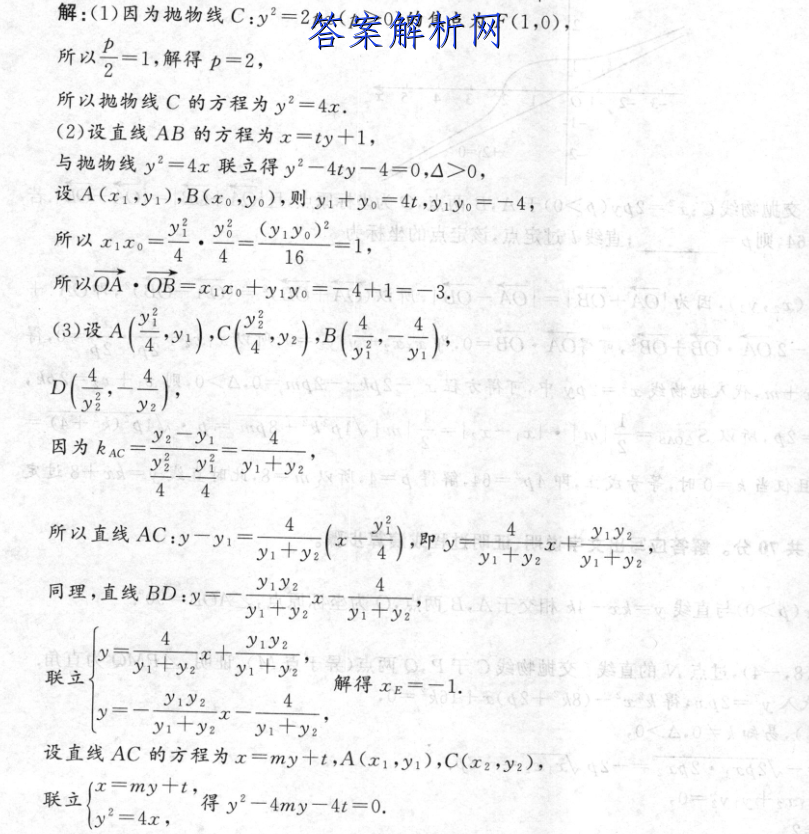 解:(1)因为抛物线 C:y²=2px(p>0)的焦点为F(1,0),
答案解析网
所以p/2=1,解得 p=2,
所以抛物线 C 的方程为 y²=4x.
(2)设直线 AB 的方程为 x=ty+1,
与抛物线 y²=4x 联立得 y²-4ty-4=0,Δ>0,
设 A(x₁,y₁),B(x₀,y₀),则 y₁+y₀=4t,y₁y₀=-4,
所以 x₁x₀=y₁²/4·y₀²/4=(y₁y₀)²/16=1,
所以OA·OB=x₁x₀+y₁y₀=-4+1=-3.
(3)设 A(y₁²/4,y₁),C(y₂²/4,y₂),B(4/y₁²,-4/y₁),
D(4/y₂²,-4/y₂),
因为 k_AC=(y₂-y₁)/(y₂²/4-y₁²/4)=4/(y₁+y₂),
所以直线 AC:y-y₁=4/(y₁+y₂)(x-y₁²/4),即 y=4/(y₁+y₂)x+y₁y₂/(y₁+y₂),
同理,直线 BD:y=-y₁y₂/(y₁+y₂)x-4/(y₁+y₂),
联立{y=4/(y₁+y₂)x+y₁y₂/(y₁+y₂),
y=-y₁y₂/(y₁+y₂)x-4/(y₁+y₂), 解得 x_E=-1.
设直线 AC 的方程为 x=my+t,A(x₁,y₁),C(x₂,y₂),
联立{x=my+t,
y²=4x, 得 y²-4my-4t=0.